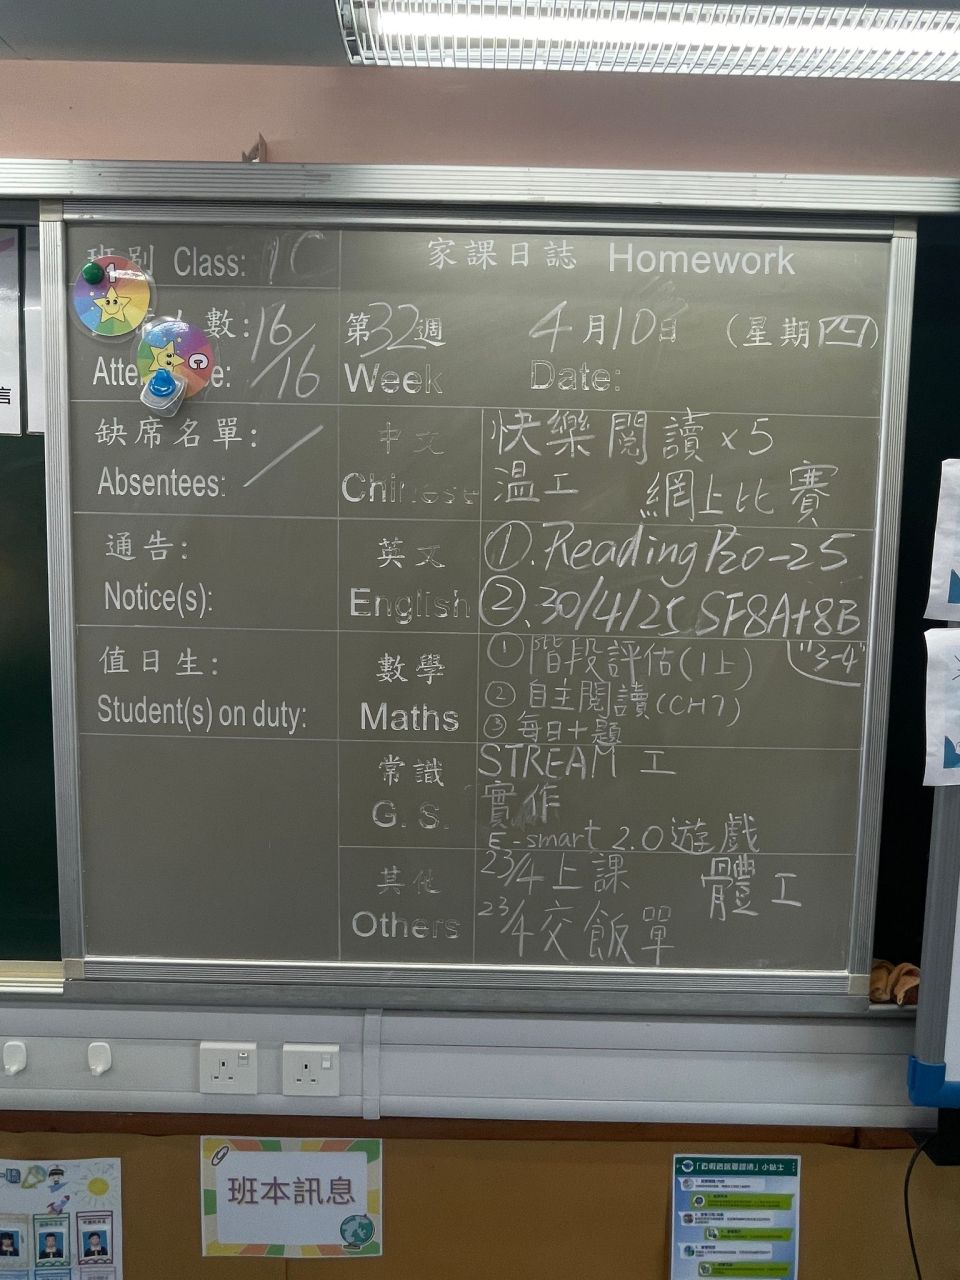 班別 Class: 1C
家課日誌 Homework
人數: 16/16
第32週 4月10日 (星期四)
Week Date:
缺席名單: /
Absentees:
中文 快樂閱讀 x5
Chinese 溫工 網上比賽
通告:
Notice(s):
英文 ①.Reading Pro-25
English ②.30/4/25 SF8A+8B
"3-4"
值日生:
Student(s) on duty:
數學 ① 階段評估(1上)
Maths ② 自主閱讀(CH7)
③ 每日十題
常識 STREAM 工
G. S. 實作
E-smart 2.0遊戲
其他 23/4上課 體工
Others 23/4交飯單
班本訊息